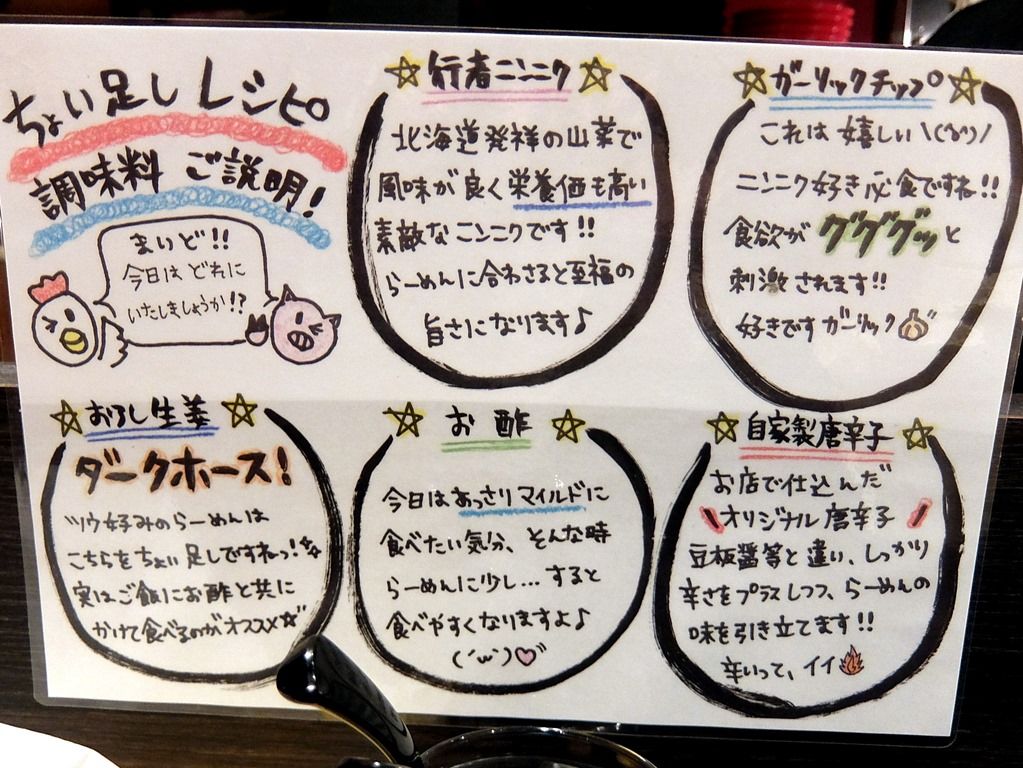 ちょい足しレシピ
調味料 ご説明!
まいど!!
今日はどれに
いたしましょうか!?
☆行者ニンニク☆
北海道発祥の山菜で
風味が良く栄養価も高い
素敵なニンニクです!!
らーめんに合わさると至福の
旨さになります♪
☆ガーリックチップ☆
これは嬉しい
ニンニク好き必食ですね!!
食欲がググググッと
刺激されます!!
好きですガーリック
☆おろし生姜☆
ダークホース!
ツウ好みのらーめんは
こちらをちょい足しですねっ!☆
実はご飯にお酢と共に
かけて食べるのがオススメ☆
☆お酢☆
今日はあっさりマイルドに
食べたい気分、そんな時
らーめんに少し...すると
食べやすくなりますよ♪
(´ω`)♡
☆自家製唐辛子☆
お店で仕込んだ
オリジナル唐辛子
豆板醤等と違い、しっかり
辛さをプラスしつつ、らーめんの
味を引き立てます!!
辛いって、イイ